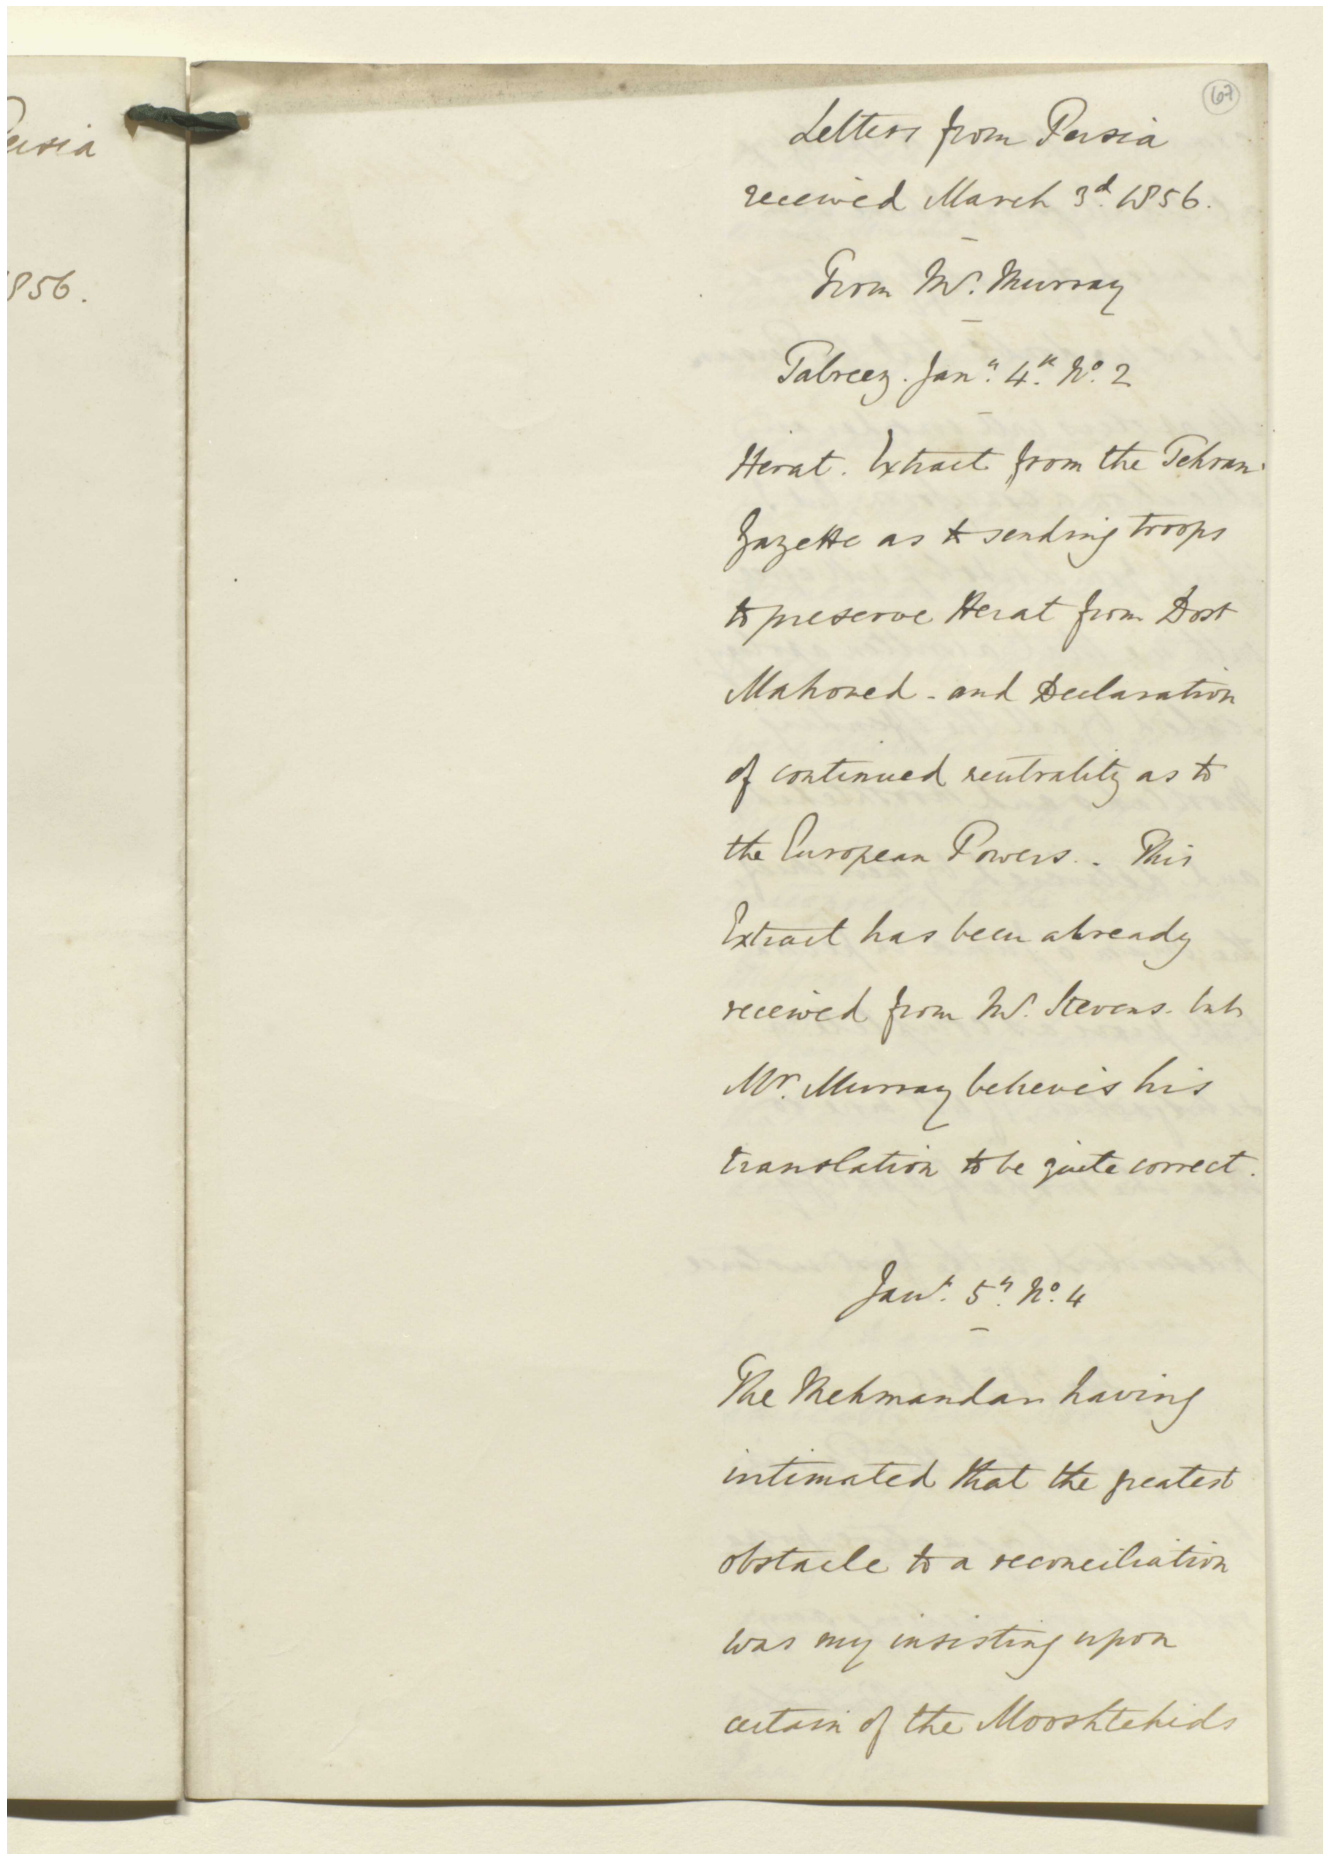 ersia
1856.
67
Letters from Persia
received March 3d. 1856.
From Mr. Murray
Tabreez. Jany. 4th. No. 2
Herat. Extract from the Tehran
Gazette as to sending troops
to preserve Herat from Dost
Mahomed - and Declaration
of continued neutrality as to
the European Powers. - This
Extract has been already
received from Mr. Stevens. but
Mr. Murray believes his
translation to be quite correct.
Jany. 5th. No. 4
The Mehmandar having
intimated that the greatest
obstacle to a reconciliation
was my insisting upon
certain of the Mooshtehids